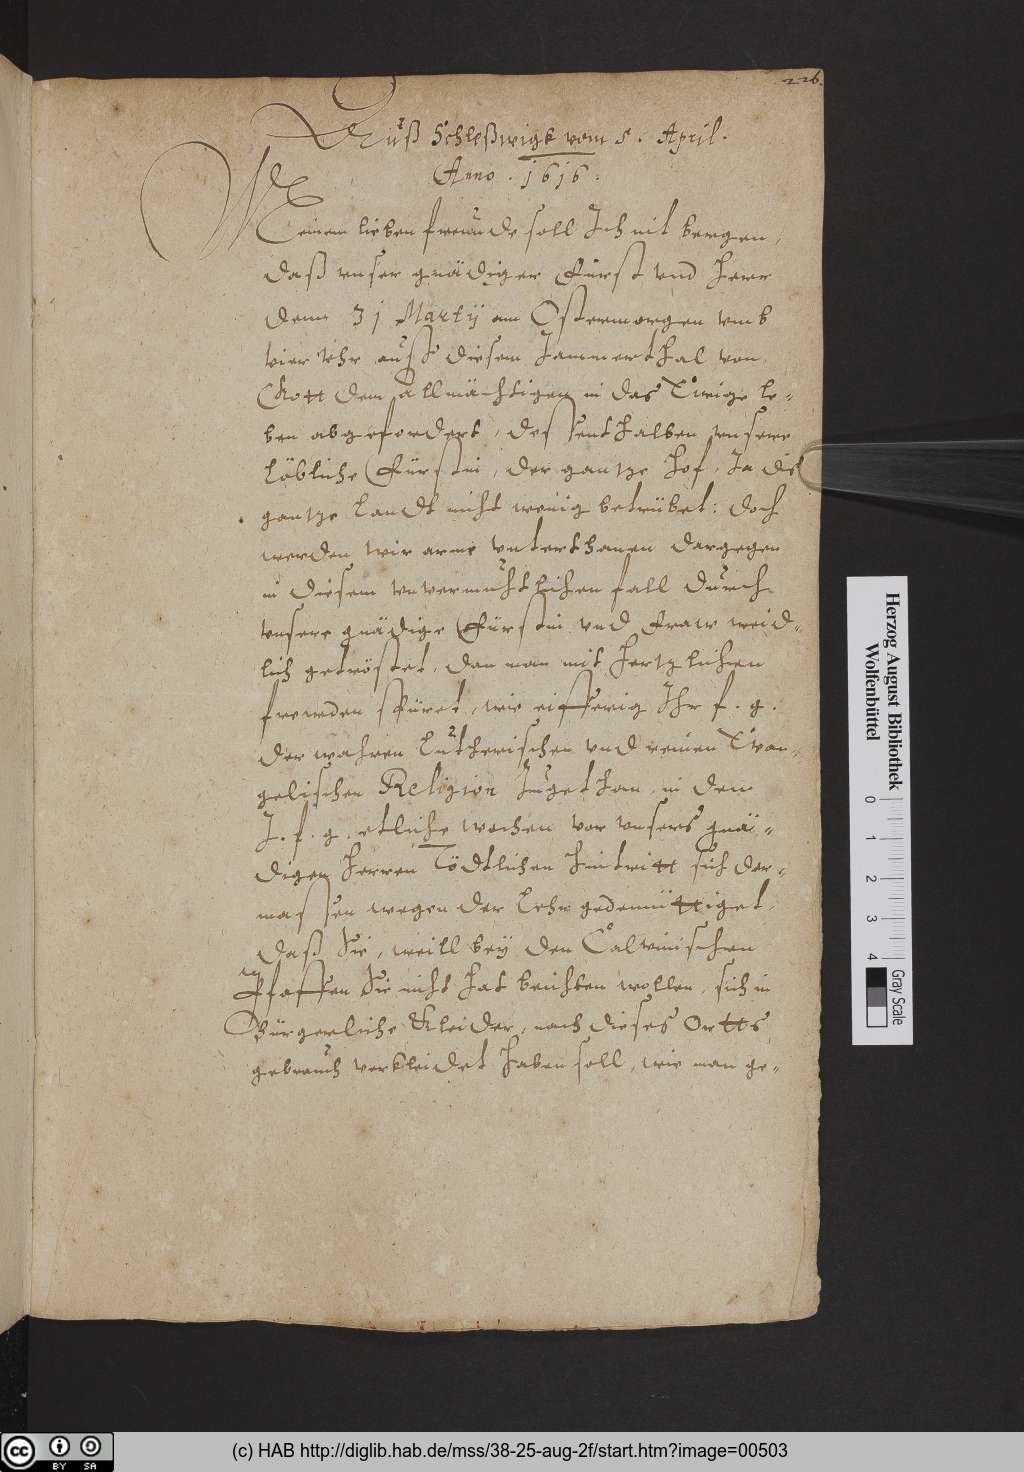 226.
Auß Schleßwigk vom 5. April.
Anno . 1616 .
Meinem lieben freunde soll Ich nit bergen,
daß vnser gnädiger Fürst vnd Herr
denn 31 Martij am Ostermorgen vmb
vier Vhr auß diesem Jammerthal von
Gott dem Allmächtigen in das Ewige le-
ben abgefordert, dessenthalben vnsere
löbliche Fürstin, der gantze Hof, Ja die
gantze Landt nicht wenig betrübet: doch
werden wir arme vnterthanen dargegen
in diesem vnvermuhtlichen fall durch
vnsere gnädige Fürstin vnd Fraw weid-
lich getröstet, dan man mit hertzlichen
frewden spüret, wie eifferig Ihr f. g.
der wahren Lutherischen vnd reinen Evan-
gelischen Religion zugethan, in dem
J. f. g. etliche wochen vor vnsers gnä-
digen Herren Tödtlichen hintritt sich der-
massen wegen der Lehr gedemüttiget,
daß Sie, weill bey den Calvinischen
Pfaffen Sie nicht hat beichten wollen, sich in
Bürgerliche Kleider, nach dieses Ortts
gebrauch verkleidet haben soll, wie man ge-
Herzog August Bibliothek
Wolfenbüttel
0 1 2 3 4
Gray Scale
cc BY SA
(c) HAB http://diglib.hab.de/mss/38-25-aug-2f/start.htm?image=00503